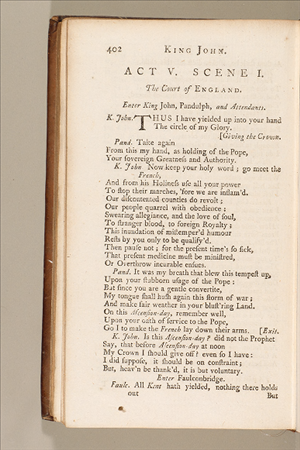 402 KING JOHN.
ACT V. SCENE I.
The Court of ENGLAND.
Enter King John, Pandolph, and Attendants.
K. John. THUS I have yielded up into your hand
The circle of my Glory.
[Giving the Crown.
Pand. Take again
From this my hand, as holding of the Pope,
Your sovereign Greatneſs and Authority.
K. John Now keep your holy word; go meet the
French,
And from his Holineſs uſe all your power
To ſtop their marches, 'fore we are inflam'd.
Our diſcontented counties do revolt;
Our people quarrel with obedience;
Swearing allegiance, and the love of ſoul,
To ſtranger blood, to foreign Royalty:
This inundation of miſtemper'd humour
Reſts by you only to be qualify'd.
Then pauſe not; for the preſent time's ſo ſick,
That preſent medicine muſt be miniſtred,
Or Overthrow incurable enſues.
Pand. It was my breath that blew this tempeſt up,
Upon your ſtubborn uſage of the Pope:
But ſince you are a gentle convertite,
My tongue ſhall huſh again this ſtorm of war;
And make fair weather in your bluſt'ring Land.
On this Aſcenſion-day, remember well,
Upon your oath of ſervice to the Pope,
Go I to make the French lay down their arms. [Exit.
K. John. Is this Aſcenſion-day? did not the Prophet
Say, that before Aſcenſion-day at noon
My Crown I ſhould give off? even ſo I have:
I did ſuppoſe, it ſhould be on conſtraint;
But, heav'n be thank'd, it is but voluntary.
Enter Faulconbridge.
Faulc. All Kent hath yielded, nothing there holds
out
But